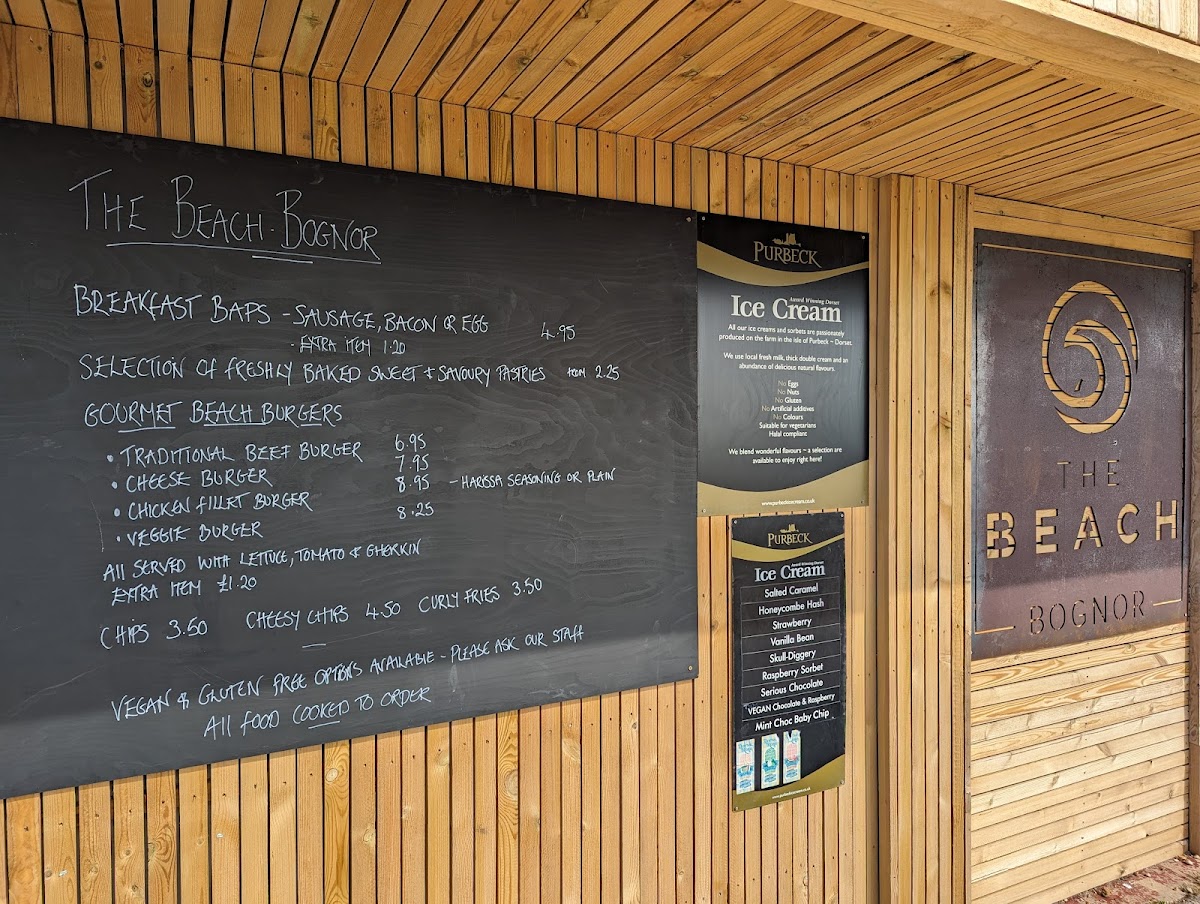 THE BEACH-BOGNOR
BREAKFAST BAPS - SAUSAGE, BACON OR EGG 4.95
- EXTRA ITEM 1.20
SELECTION OF FRESHLY BAKED SWEET & SAVOURY PASTRIES FROM 2.25
GOURMET BEACH BURGERS
• TRADITIONAL BEEF BURGER 6.95
• CHEESE BURGER 7.95
• CHICKEN FILLET BURGER 8.95 - HARISSA SEASONING OR PLAIN
• VEGGIE BURGER 8.25
All SERVED WITH LETTUCE, TOMATO & GHERKIN
EXTRA ITEM £1.20
CHIPS 3.50 CHEESY CHIPS 4.50 CURLY FRIES 3.50
VEGAN & GLUTEN FREE OPTIONS AVAILABLE - PLEASE ASK OUR STAFF
All FOOD COOKED TO ORDER
PURBECK
Award Winning Dorset
Ice Cream
All our ice creams and sorbets are passionately
produced on the farm in the isle of Purbeck ~ Dorset.
We use local fresh milk, thick double cream and an
abundance of delicious natural flavours.
No Eggs
No Nuts
No Gluten
No Artificial additives
No Colours
Suitable for vegetarians
Halal compliant
We blend wonderful flavours ~ a selection are
available to enjoy right here!
www.purbeckicecream.co.uk
PURBECK
Award Winning Dorset
Ice Cream
Salted Caramel
Honeycombe Hash
Strawberry
Vanilla Bean
Skull-Diggery
Raspberry Sorbet
Serious Chocolate
VEGAN Chocolate & Raspberry
Mint Choc Baby Chip
www.purbeckicecream.co.uk
THE
BEACH
BOGNOR